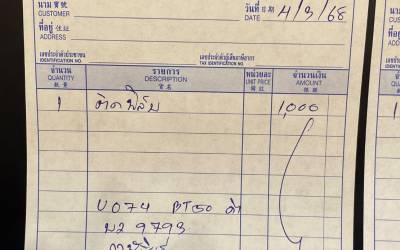 นาม 寶號 วันที่ 日期 4/9/68
CUSTOMER DATE
ที่อยู่ 住址
ADDRESS
เลขประจำตัวประชาชน เลขประจำตัวผู้เสียภาษีอากร
IDENTIFICATION NO. TAX IDENTIFICATION NO.
จำนวน รายการ หน่วยละ จำนวนเงิน
QUANTITY DESCRIPTION UNIT PRICE AMOUNT
數量 貨名 單價 銀碼
1 ติดฟิล์ม 1,000
U074 BT50 ดำ
ผ2 9793